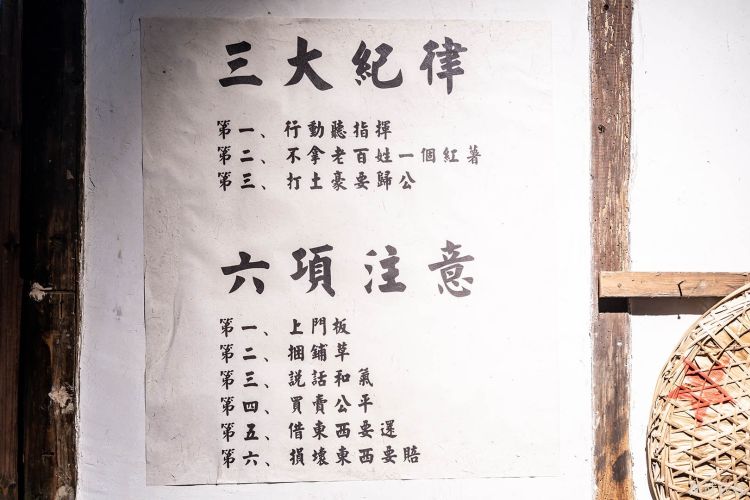 三大紀律
第一、行動聽指揮
第二、不拿老百姓一個紅薯
第三、打土豪要歸公
六項注意
第一、上門板
第二、捆鋪草
第三、説話和氣
第四、買賣公平
第五、借東西要還
第六、損壞東西要賠